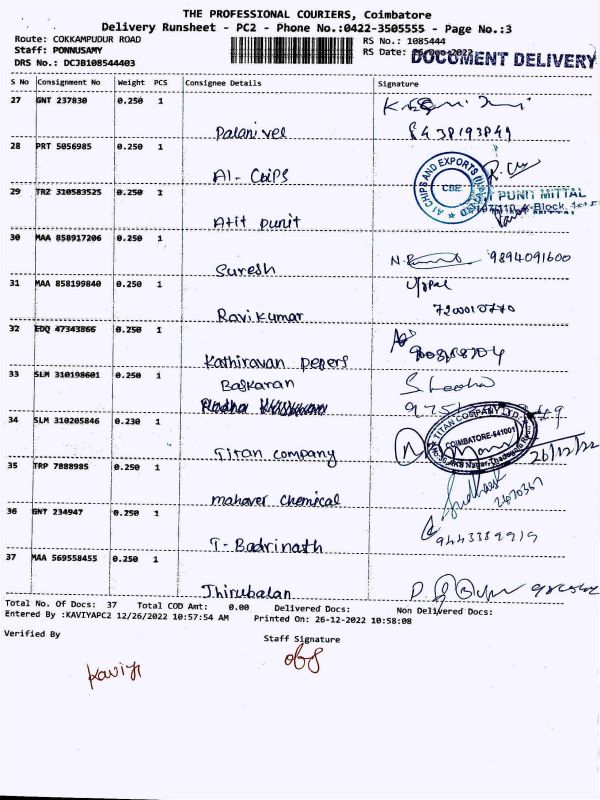 THE PROFESSIONAL COURIERS, Coimbatore
Delivery Runsheet - PC2 - Phone No.:0422-3505555 - Page No.:3
Route: COKKAMPUDUR ROAD
RS No.: 1085444
Staff: PONNUSAMY
RS Date: 26-Dec-2022
DOCUMENT DELIVERY
DRS No.: DCJB108544403
S No Consignment No Weight PCS Consignee Details Signature
27 GNT 237830 0.250 1
Palanivel
28 PRT 5056985 0.250 1
AI- ChiPS
AI CHIPS AND EXPORTS
CBE
29 TRZ 310583525 0.250 1
PUNIT MITTAL
Atit punit
30 MAA 858917206 0.250 1
Suresh
9894091600
31 MAA 858199840 0.250 1
Ravikumar
32 EDQ 47343866 0.250 1
Kathiravan pepers
33 SLM 310198601 0.250 1
Baskaran
34 SLM 310205846 0.230 1
Titan company
TITAN COMPANY LTD
COIMBATORE-641001
26/12/22
35 TRP 7888985 0.250 1
mahaver chemical
36 GNT 234947 0.250 1
T- Badrinath
37 MAA 569558455 0.250 1
Thirubalan
Total No. Of Docs: 37 Total COD Amt: 0.00 Delivered Docs: Non Delivered Docs:
Entered By :KAVIYAPC2 12/26/2022 10:57:54 AM Printed On: 26-12-2022 10:58:08
Verified By
Staff Signature
kaviya